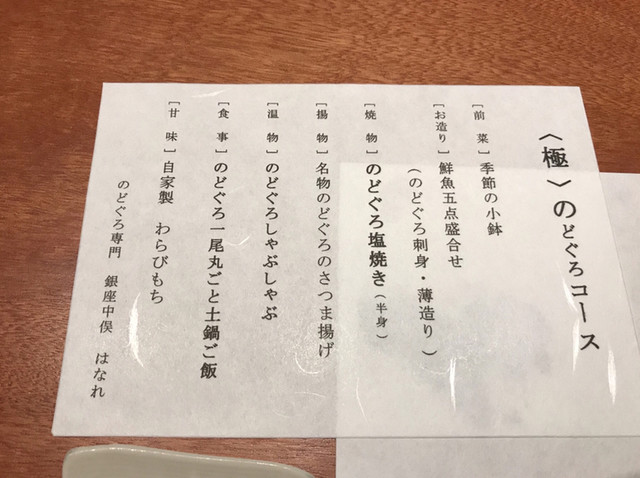 〈極〉のどぐろコース
［前菜］季節の小鉢
［お造り］鮮魚五点盛合せ
（のどぐろ刺身・薄造り）
［焼物］のどぐろ塩焼き（半身）
［揚物］名物のどぐろのさつま揚げ
［温物］のどぐろしゃぶしゃぶ
［食事］のどぐろ一尾丸ごと土鍋ご飯
［甘味］自家製 わらびもち
のどぐろ専門 銀座中俣 はなれ